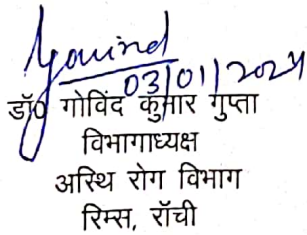 Govind
03/01/2024
डॉ० गोविंद कुमार गुप्ता
विभागाध्यक्ष
अस्थि रोग विभाग
रिम्स, राँची